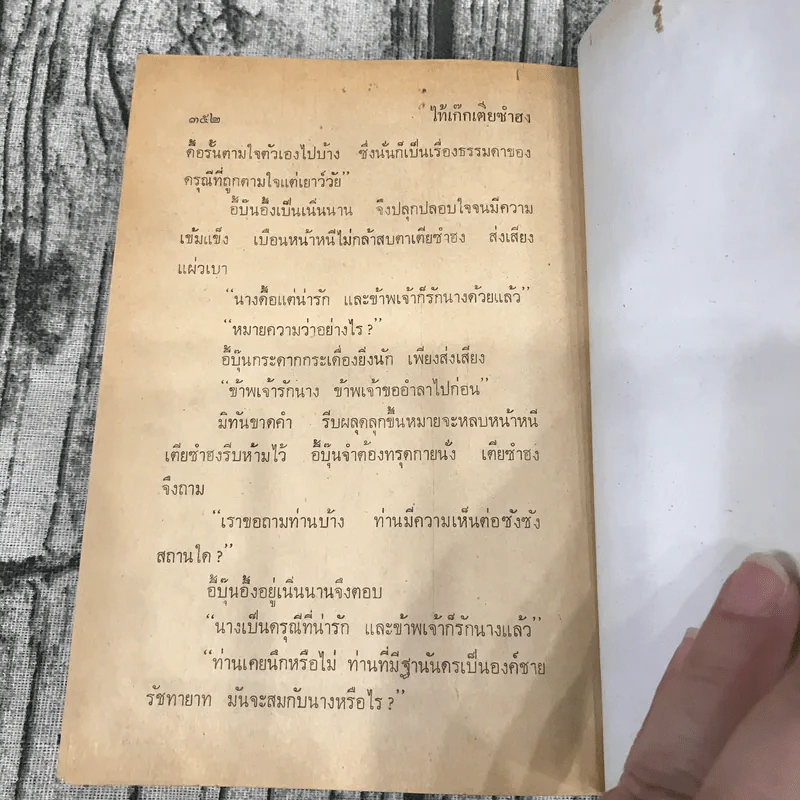 ๓๕๒ ไท้เก๊กเตียซำฮง
ดื้อรั้นตามใจตัวเองไปบ้าง ซึ่งนั่นก็เป็นเรื่องธรรมดาของ
ดรุณีที่ถูกตามใจแต่เยาว์วัย”
อี้บุ๊นอึ้งเป็นเนิ่นนาน จึงปลุกปลอบใจจนมีความ
เข้มแข็ง เบือนหน้าหนีไม่กล้าสบตาเตียซำฮง ส่งเสียง
แผ่วเบา
“นางดื้อแต่น่ารัก และข้าพเจ้าก็รักนางด้วยแล้ว”
“หมายความว่าอย่างไร ?”
อี้บุ๊นกระดากกระเดื่องยิ่งนัก เพียงส่งเสียง
“ข้าพเจ้ารักนาง ข้าพเจ้าขออำลาไปก่อน”
มิทันขาดคำ รีบผลุดลุกขึ้นหมายจะหลบหน้าหนี
เตียซำฮงรีบห้ามไว้ อี้บุ๊นจำต้องทรุดกายนั่ง เตียซำฮง
จึงถาม
“เราขอถามท่านบ้าง ท่านมีความเห็นต่อซังซัง
สถานใด ?”
อี้บุ๊นอึ้งอยู่เนิ่นนานจึงตอบ
“นางเป็นดรุณีที่น่ารัก และข้าพเจ้าก็รักนางแล้ว”
“ท่านเคยนึกหรือไม่ ท่านที่มีฐานันดรเป็นองค์ชาย
รัชทายาท มันจะสมกับนางหรือไร ?”